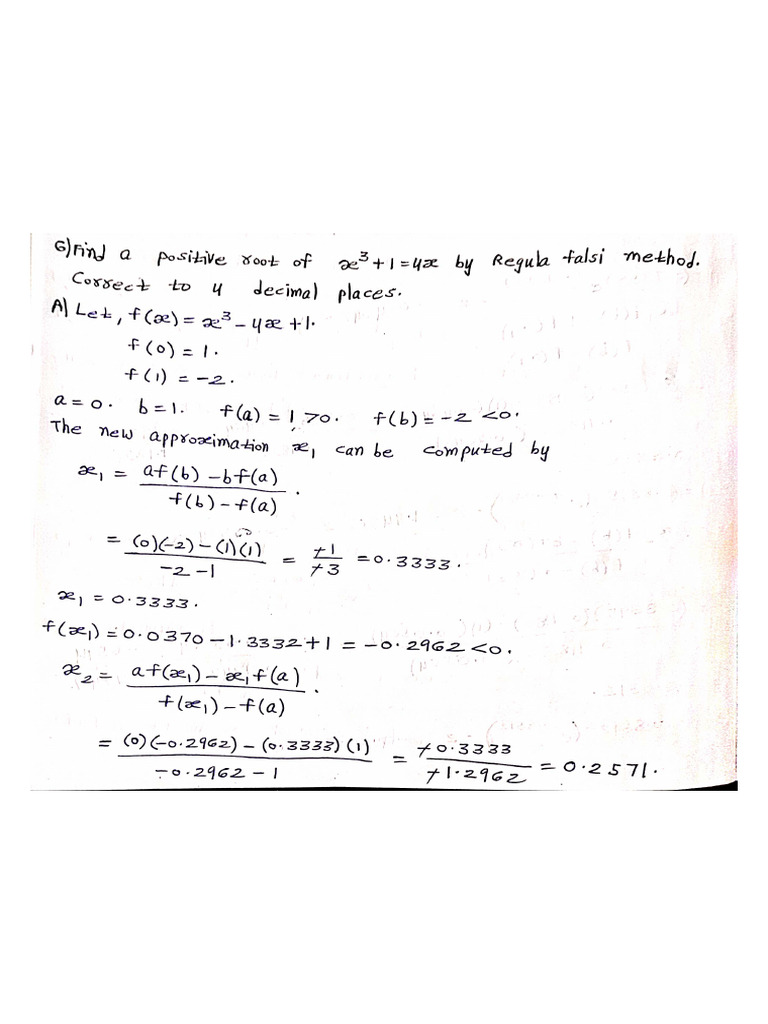 G) Find a positive root of x³+1=4x by Regula falsi method.
Correct to 4 decimal places.
A) Let, f(x) = x³ - 4x + 1.
f(0) = 1.
f(1) = -2.
a = 0. b = 1. f(a) = 1 > 0. f(b) = -2 < 0.
The new approximation x₁ can be computed by
x₁ = (af(b) - bf(a)) / (f(b) - f(a)).
= ((0)(-2) - (1)(1)) / (-2 - 1) = -1 / -3 = 0.3333.
x₁ = 0.3333.
f(x₁) = 0.0370 - 1.3332 + 1 = -0.2962 < 0.
x₂ = (af(x₁) - x₁f(a)) / (f(x₁) - f(a)).
= ((0)(-0.2962) - (0.3333)(1)) / (-0.2962 - 1) = -0.3333 / -1.2962 = 0.2571.